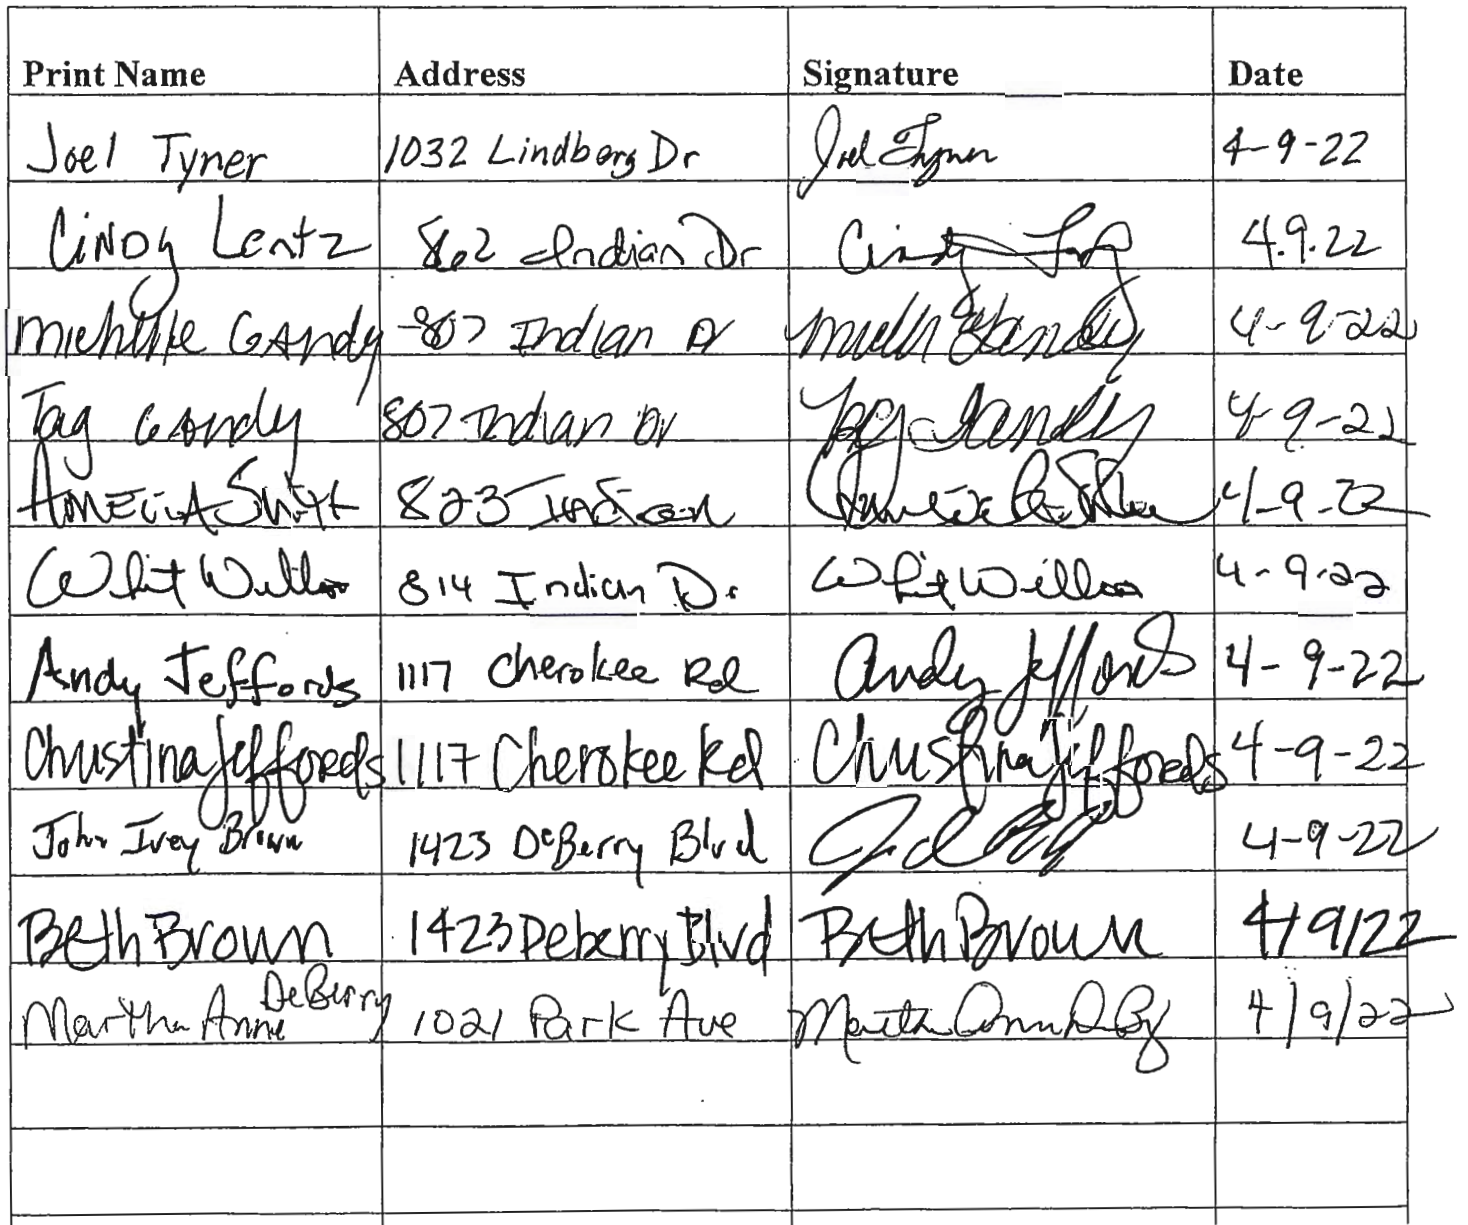 Print Name Address Signature Date
Joel Tyner 1032 Lindberg Dr Joel Tyner 4-9-22
Cindy Lentz 862 Indian Dr Cindy 4.9.22
Michelle Gandy 807 Indian Dr Gandy 4-9-22
Tag Gandy 807 Indian Dr Tag Gandy 4-9-22
Amelia Swift 823 Indian 4-9-22
Whit 814 Indian Dr. Whit 4-9-22
Andy Jeffords 1117 Cherokee Rd Andy Jeffords 4-9-22
Christina Jeffords 1117 Cherokee Rd Christina Jeffords 4-9-22
John Ivey Brown 1423 DeBerry Blvd 4-9-22
Beth Brown 1423 Deberry Blvd Beth Brown 4/9/22
Martha Anne DeBerry 1021 Park Ave Martha 4/9/22